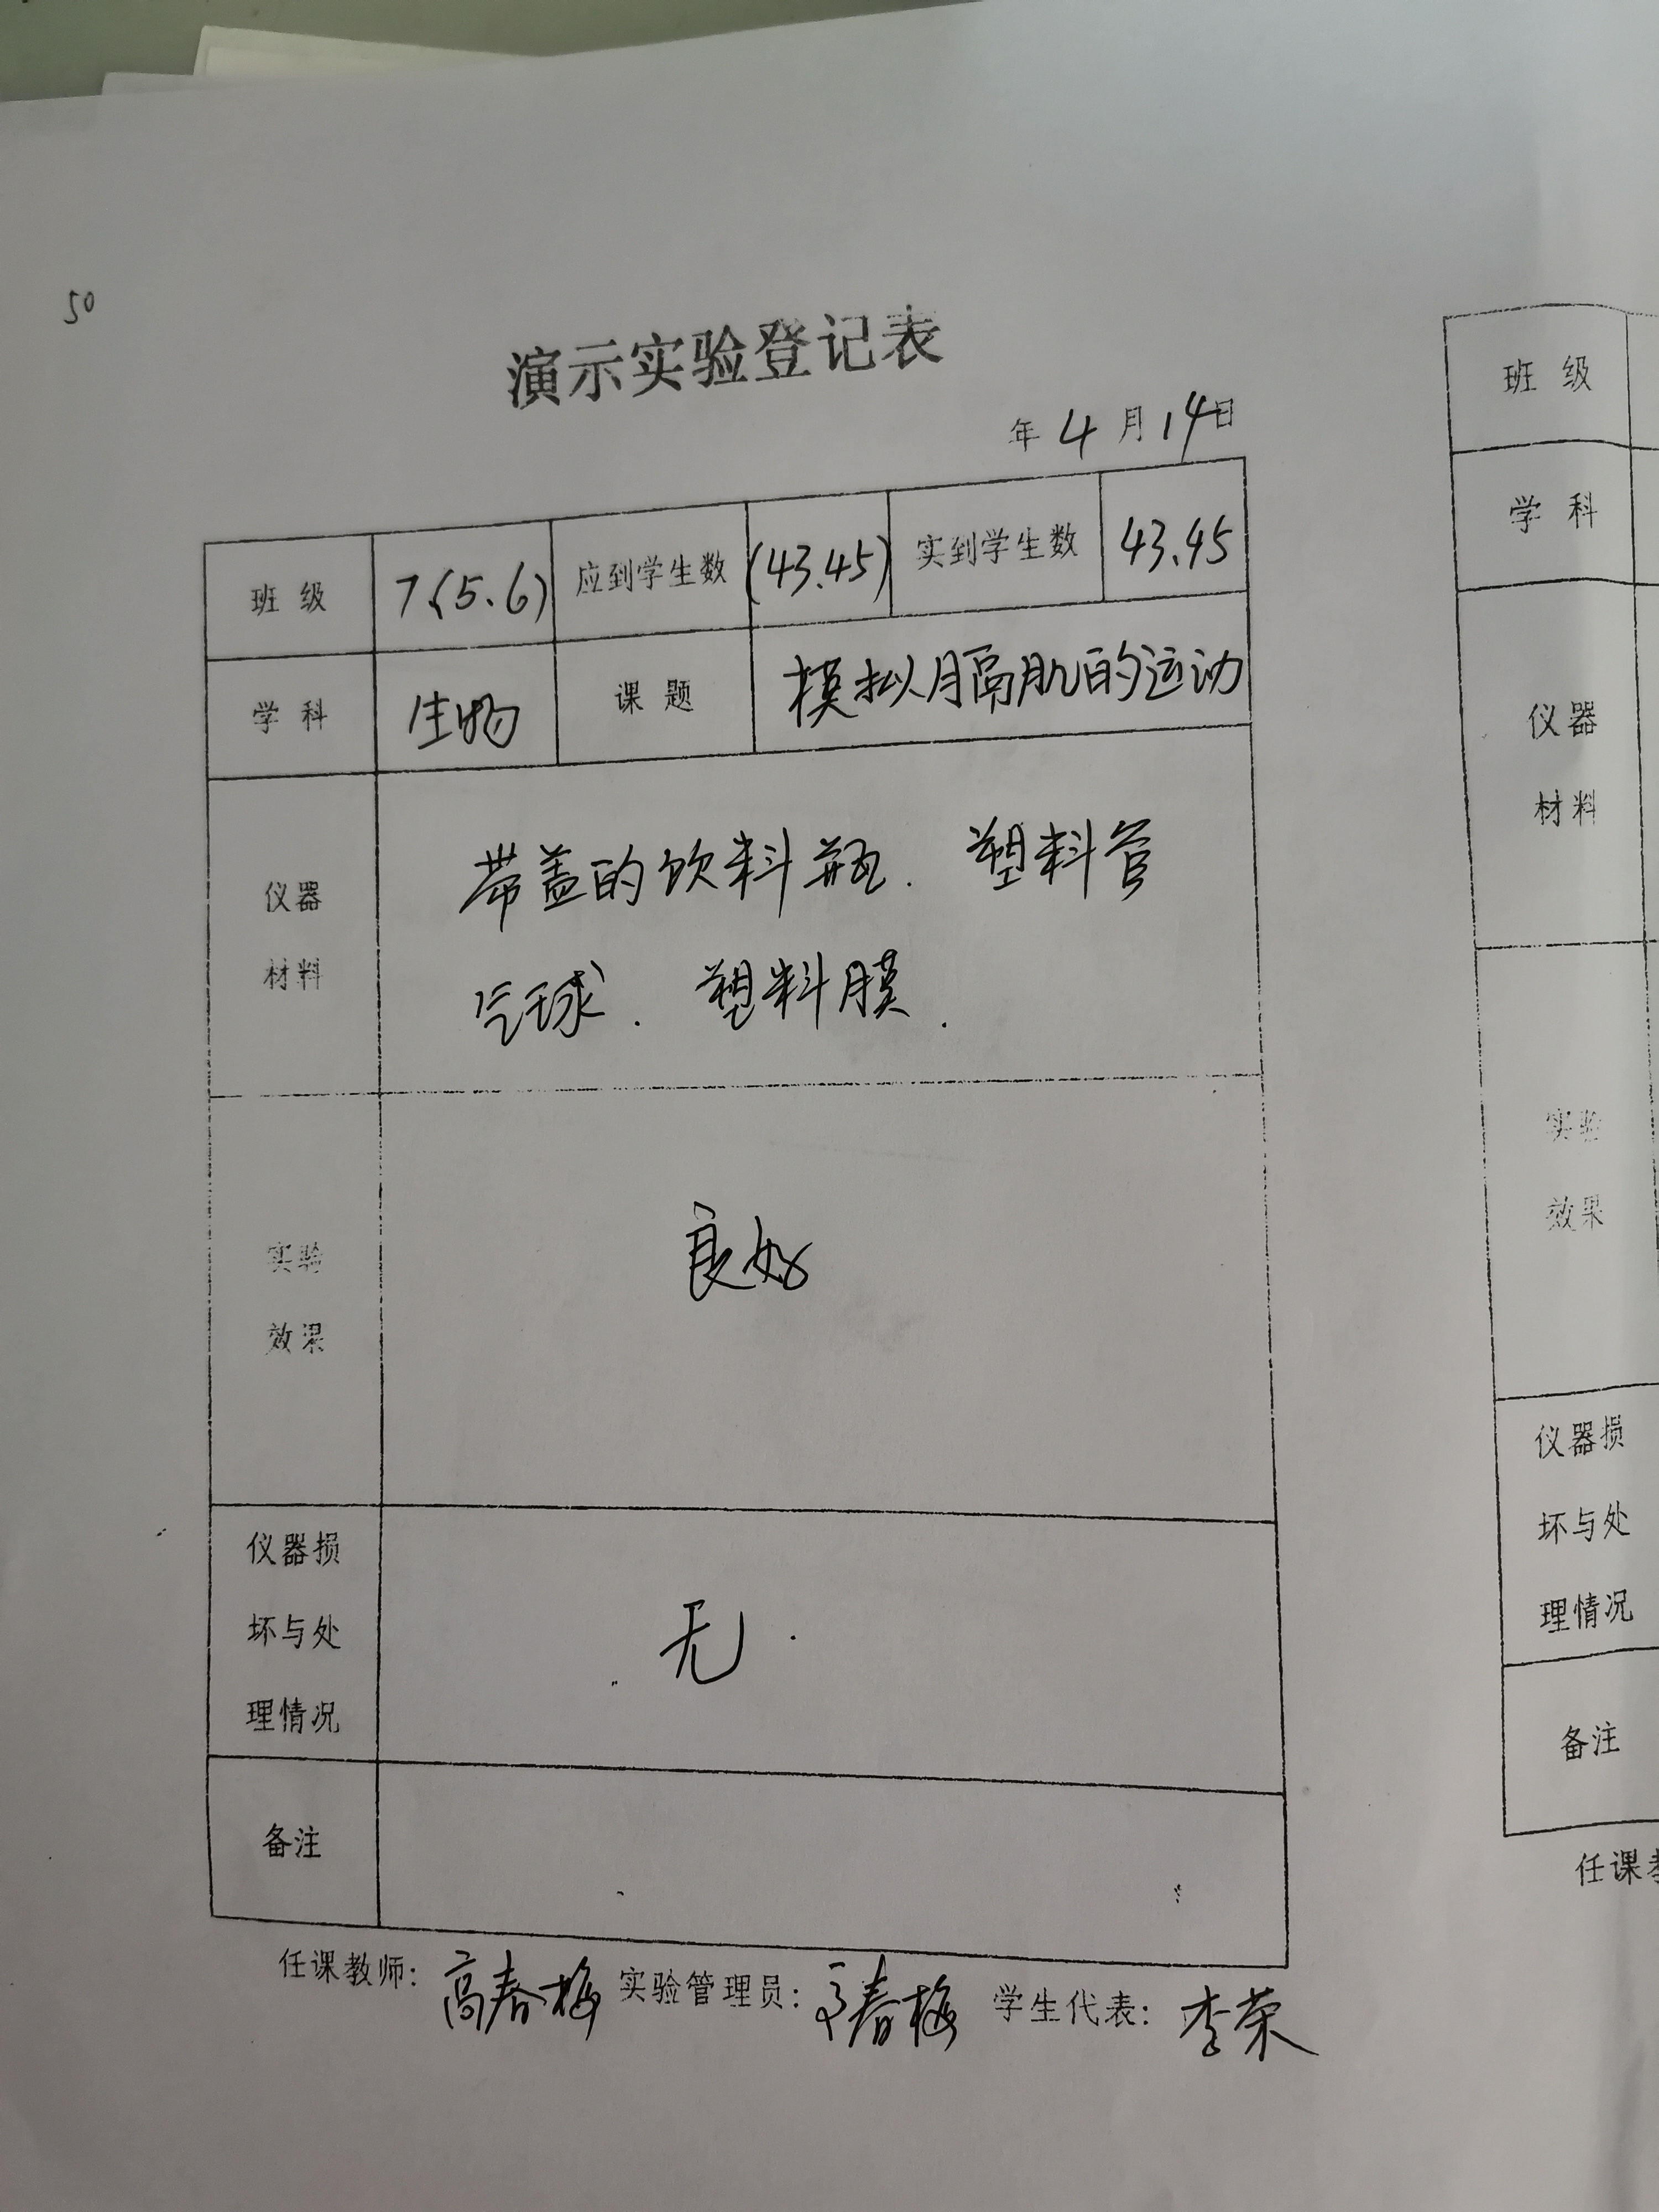 50
演示实验登记表
年 4 月 14日
班 级 7.(5、6) 应到学生数 (43.45) 实到学生数 43.45
学 科 生物 课 题 模拟膈肌的运动
仪器
材料
带盖的饮料瓶. 塑料管
气球. 塑料膜.
实验
效果
良好
仪器损
坏与处
理情况
无.
备注
任课教师: 高春梅 实验管理员: 高春梅 学生代表: 李荣
班 级
学 科
仪器
材料
实验
效果
仪器损
坏与处
理情况
备注
任课